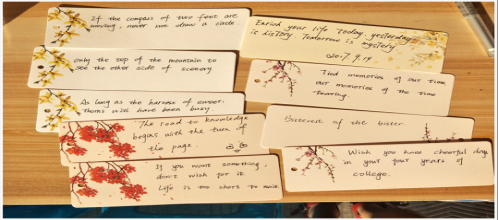 If the compass of two feet are
moving, never we draw a circle
Only the top of the mountain to
see the other side of scenery
As long as the harvest of sweet.
Thorns will have been busy
The road to knowledge
begins with the turn of
the page.
If you want something,
don't wish for it.
Life is too short to wait.
Enrich your life today, yesterday
is history. Tomorrow is mystery
2017.9.14
Tied memories of our time
our memories of the time
tearing
of the bitter
Wish you have cheerful day
in your four years of
college.